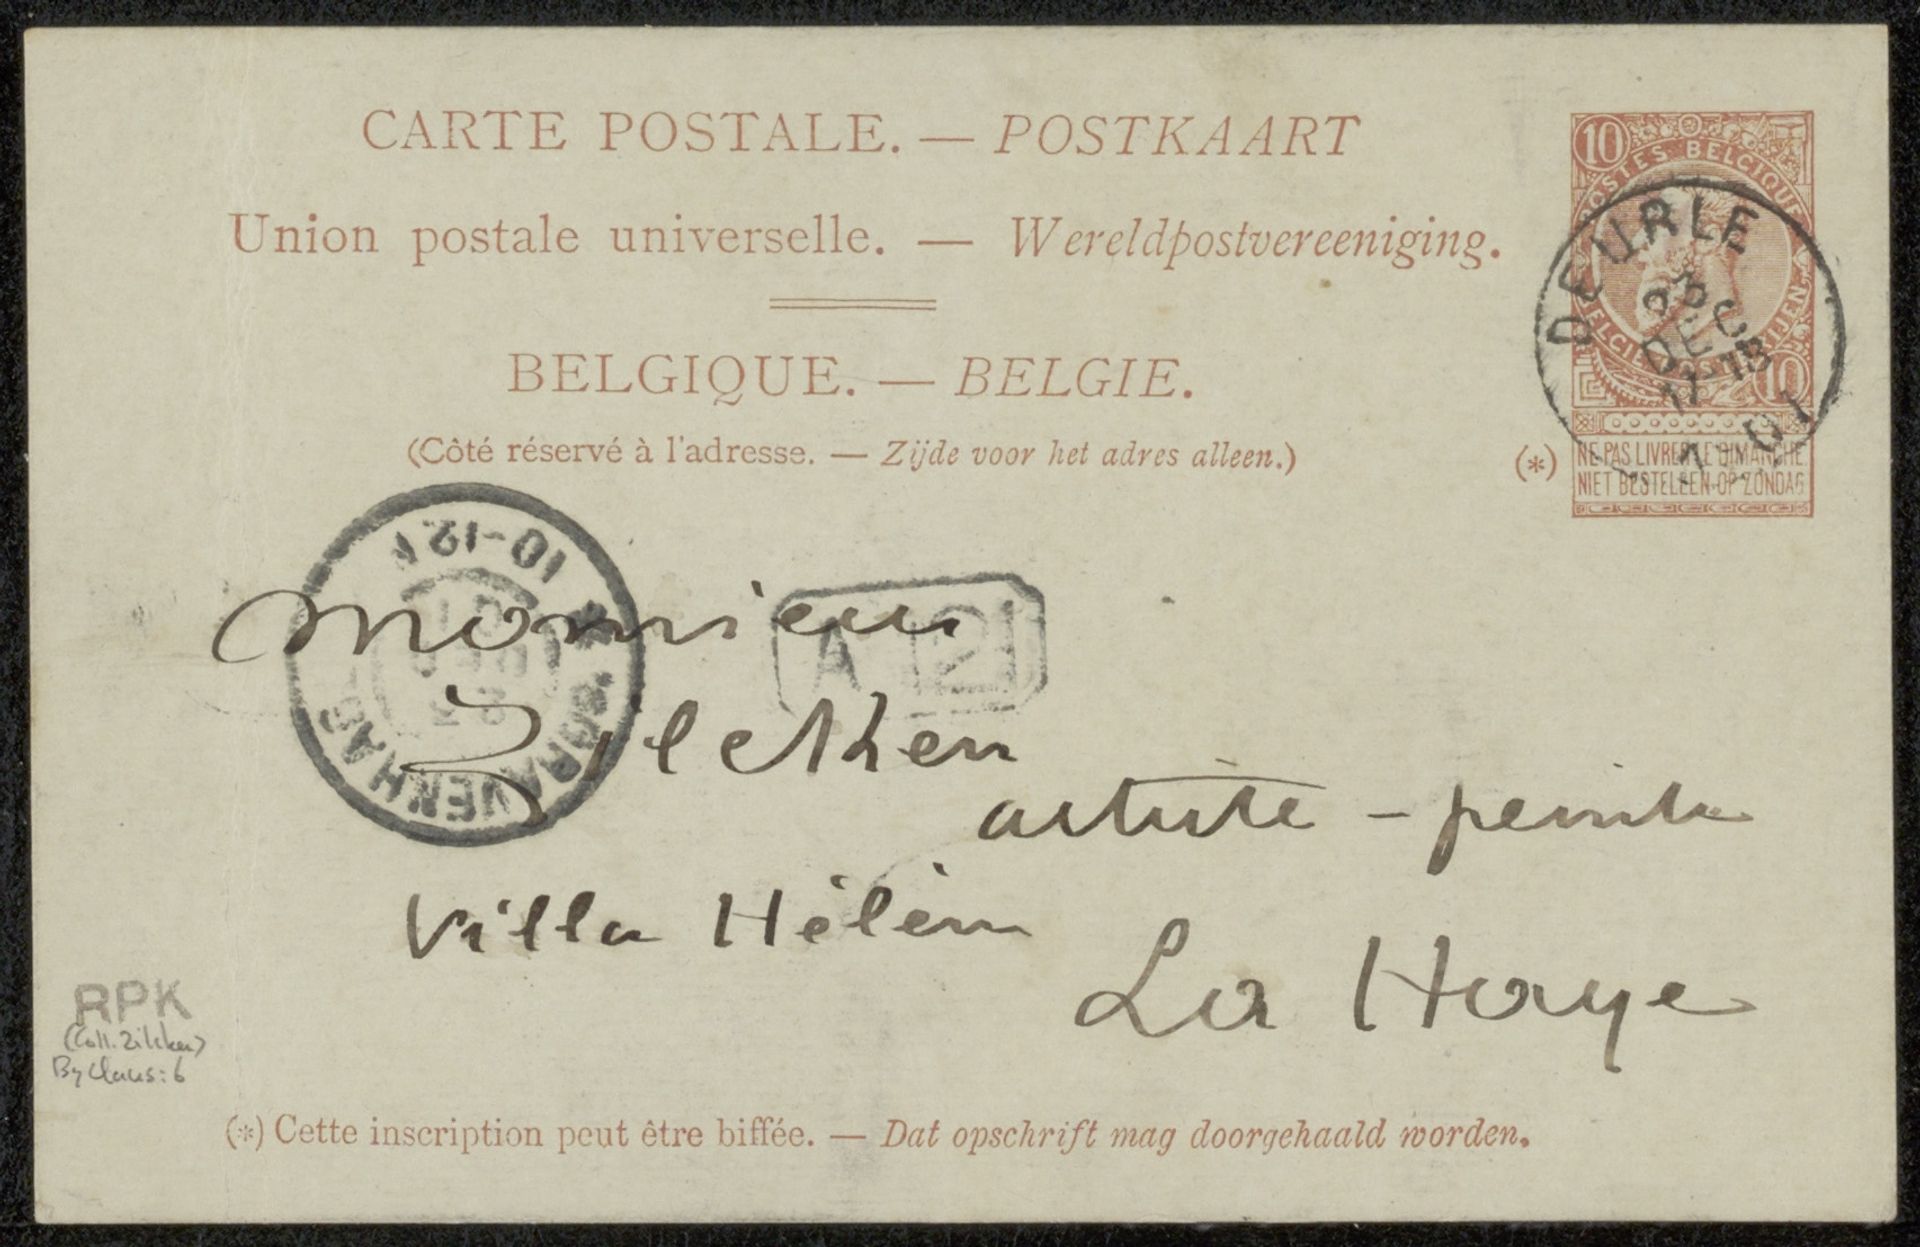 CARTE POSTALE. — POSTKAART
Union postale universelle. — Wereldpostvereeniging.
BELGIQUE. — BELGIE.
(Côté réservé à l'adresse. — Zijde voor het adres alleen.)
10
POSTES BELGIQUE
10
(*) NE PAS LIVRER LE DIMANCHE
NIET BESTELLEN OP ZONDAG
DEURLE
DEC
10-12
'SGRAVENHAGE
A 2
Monsieur
Zilcken
artiste - peintre
Villa Hélène
La Haye
RPK
(Coll. Zilcken)
By Claus: 6
(*) Cette inscription peut être biffée. — Dat opschrift mag doorgehaald worden.